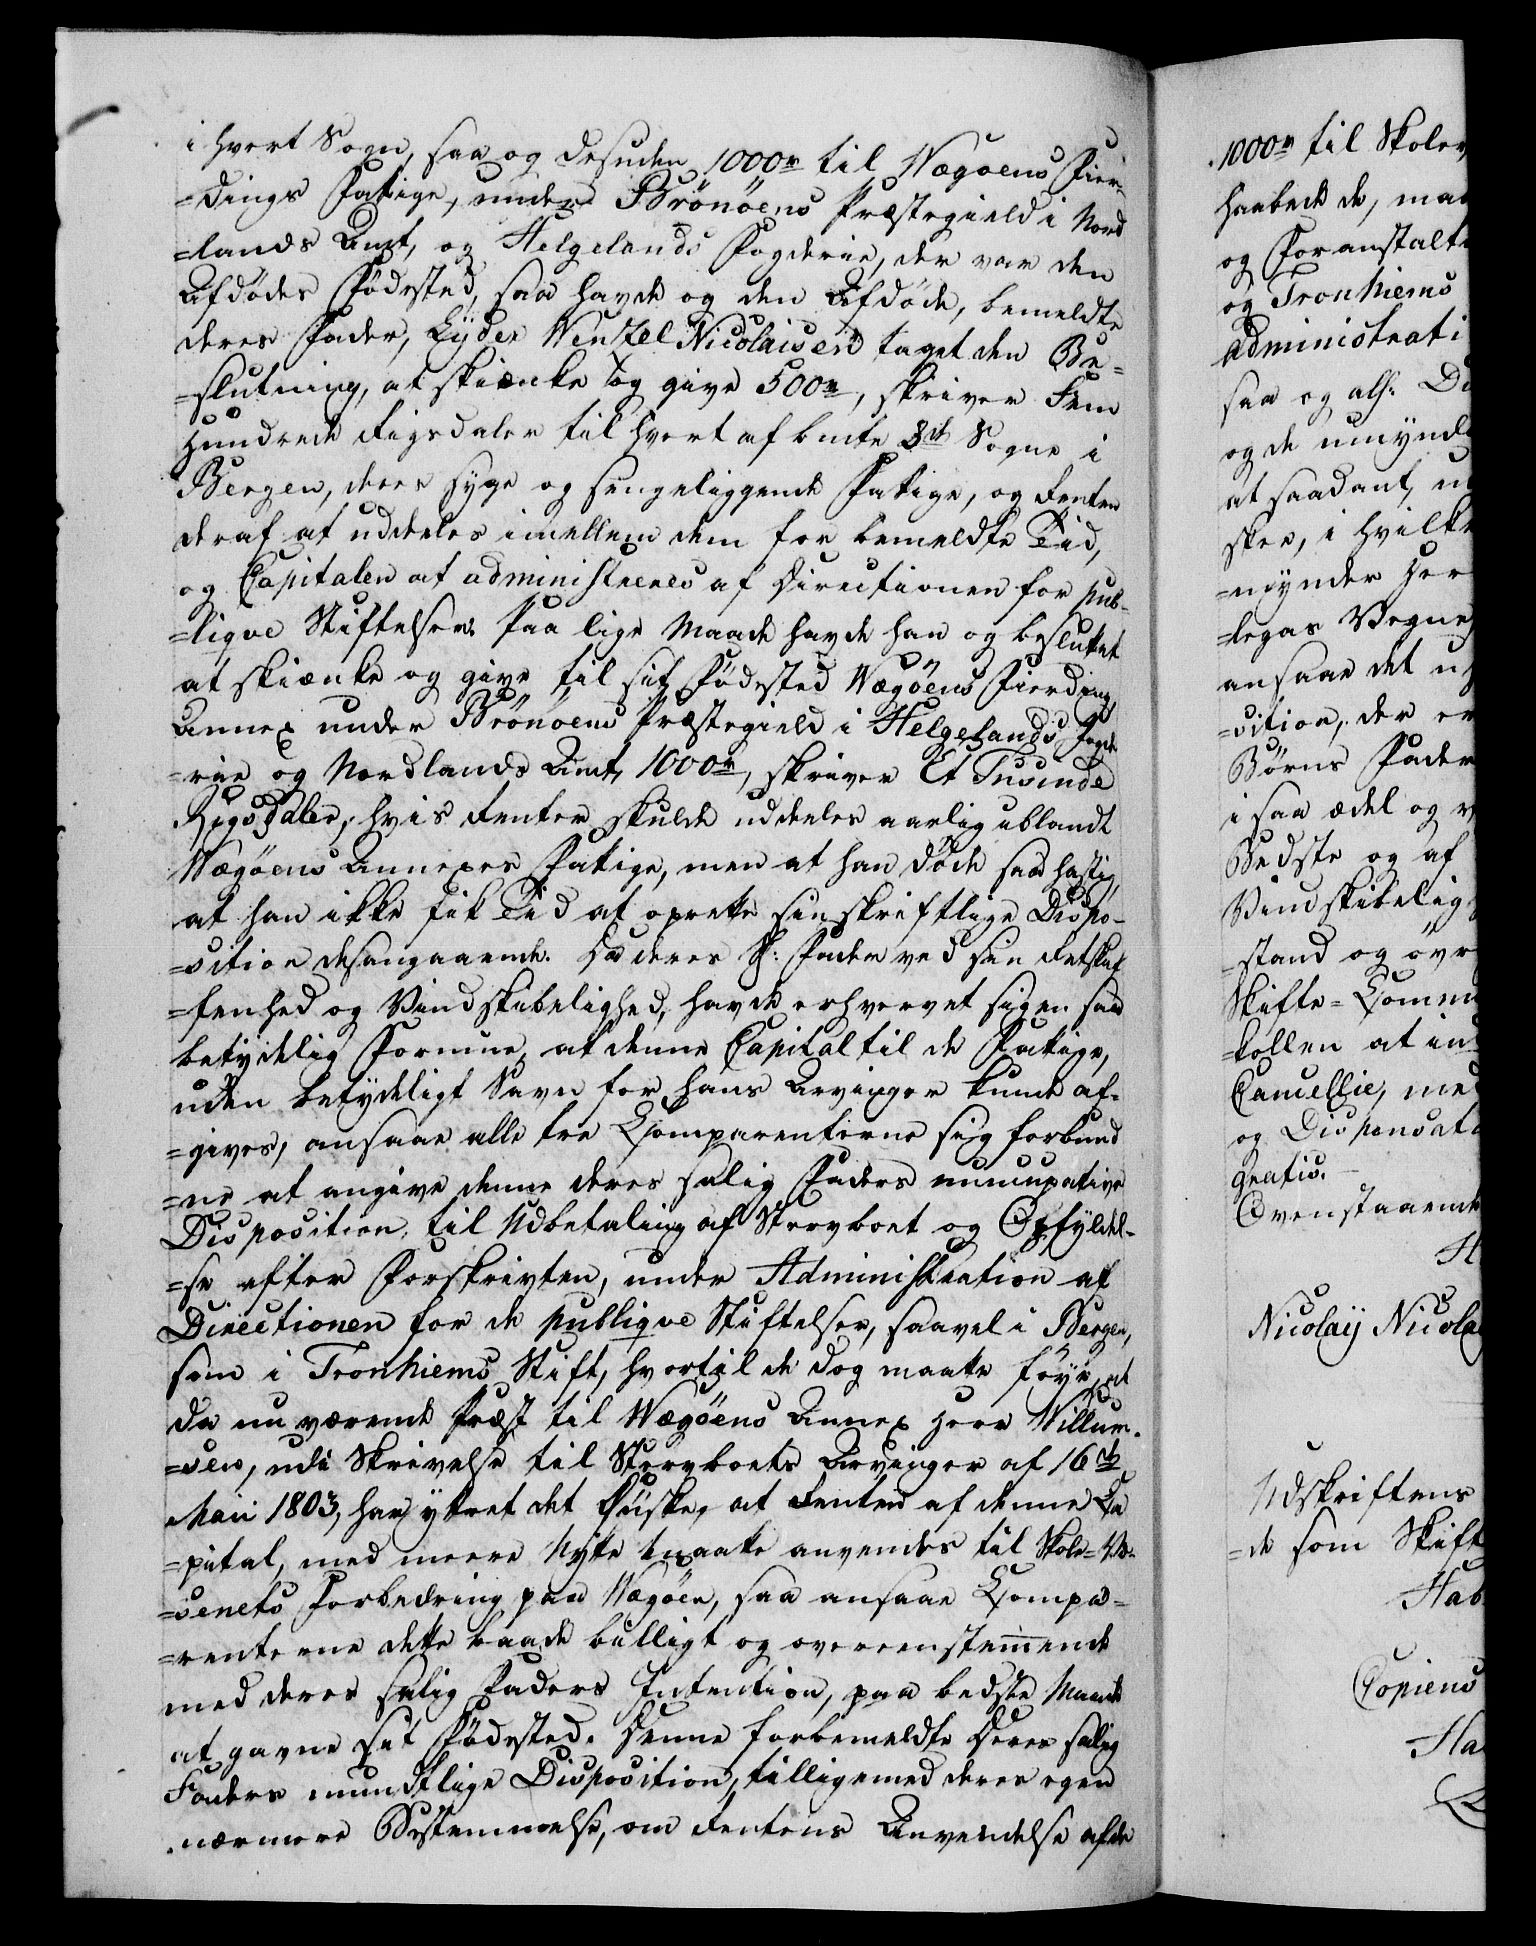 i hvert Sogn, saa og desuden 1000rd til Vægøens Fier-
=dings Fatige, under Brönöens Præstegield i Nord
=lands Amt, og Helgelands Fogderie, der var den
Afdödes Födested, saa havde og den Afdöde, bemeldte
deres Fader, Lyder Wentzel Nicolaisen taget den Be=
=slutning, at skiænke og give 500rd, skriver Fem
Hundrede Rigsdaler til hvert af bemte 3de Sogne i
Bergen, deres syge og sengeliggende Fatige, og Renten
deraf at uddeeles imellem dem for bemeldte Tid,
og Capitalen at administreres af Directionen for pub-
=lique Stiftelser. Paa lige Maade havde han og besluttet
at skiænke og give til sit Födested Vægöens Fierding,
Annex under Brönöens Præstegield i Helgelands Fogde
=rie og Nordlands Amt, 1000rd, skriver Et Tusinde
Rigsdaler, hvis Renter skulde uddeeles aarlig iblandt
Vægöens Annexes Fatige, men at han döde saa hastig,
at han ikke fik Tid at oprette sin skriftlige Dispo-
=sition desangaaende. Da deres S: Fader ved sin Retskaf
=fenhed og Vindskibelighed, havde erhvervet sig en saa
betydelig Formue, at denne Capital til de Fatige,
uden betydeligt Savn for hans Arvinger kunde af-
=gives, ansaae alle tre Comparenterne sig forbund
=ne at angive denne deres salig Faders nuncupative
Disposition, til Udbetaling af Stervboet og Opfyldel-
=se efter Forskriften, under Administration af
Directionen for de publique Stiftelser, saavel i Bergen,
som i Tronhiems Stift, hvortil de dog maatte föye, at
da nu værende Præst til Vægöens Annex Herr Villum-
=sen, udi Skrivelse til Stervboets Arvinger af 16de
Maii 1803, har ytret det Önske, at Renten af denne Ca
=pital, med meere Nytte maatte anvendes til Skole-Væ-
=senets Forbedring paa Vægöen, saa ansaae Compa=
=renterne dette baade billigt og overeenstemende
med deres salig Faders Intention, paa bedste Maade
at gavne sit Födested. Denne forbemeldte deres salig
Faders mundtlige Disposition, tilligemed deres egen
nærmere Bestemmelse, om Rentens Anvendelse af de
1000rd til Skolev
haabede de, maa
og Foranstalt
og Tronhiems
administrati
saa og alh: D
og de umynd
at saadant, u
skee, i hvilke
=mynder Her
=legas Vegne
ansaae det u
=sition, der er
Börns Fader
i saa ædel og v
Bedste og af
Vindskibelig
=stand og övr
Skifte-Comm
=kollen at in
Cancellie, me
og Dispensat
gratis.
Ovenstaaende
H
Nicolaij Nicola
Udskriftens
=de som Skift
Hab
Copiens
Ha